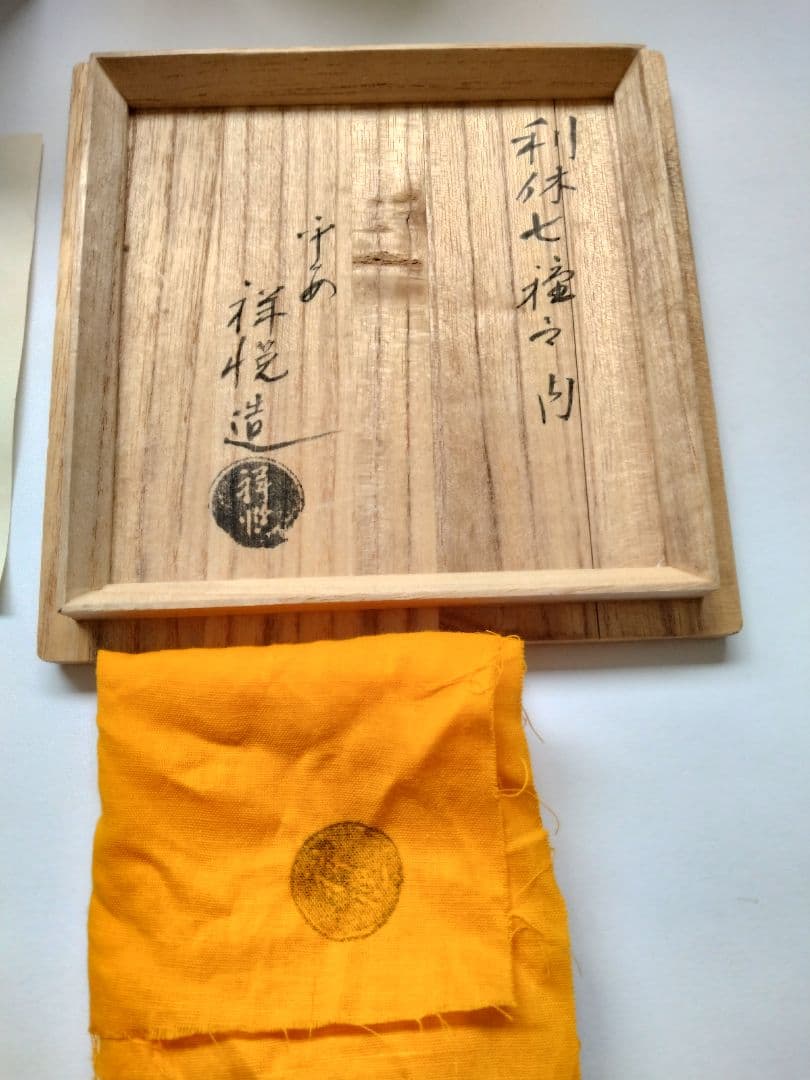 利休七種之内
平安
祥悦造
祥悦